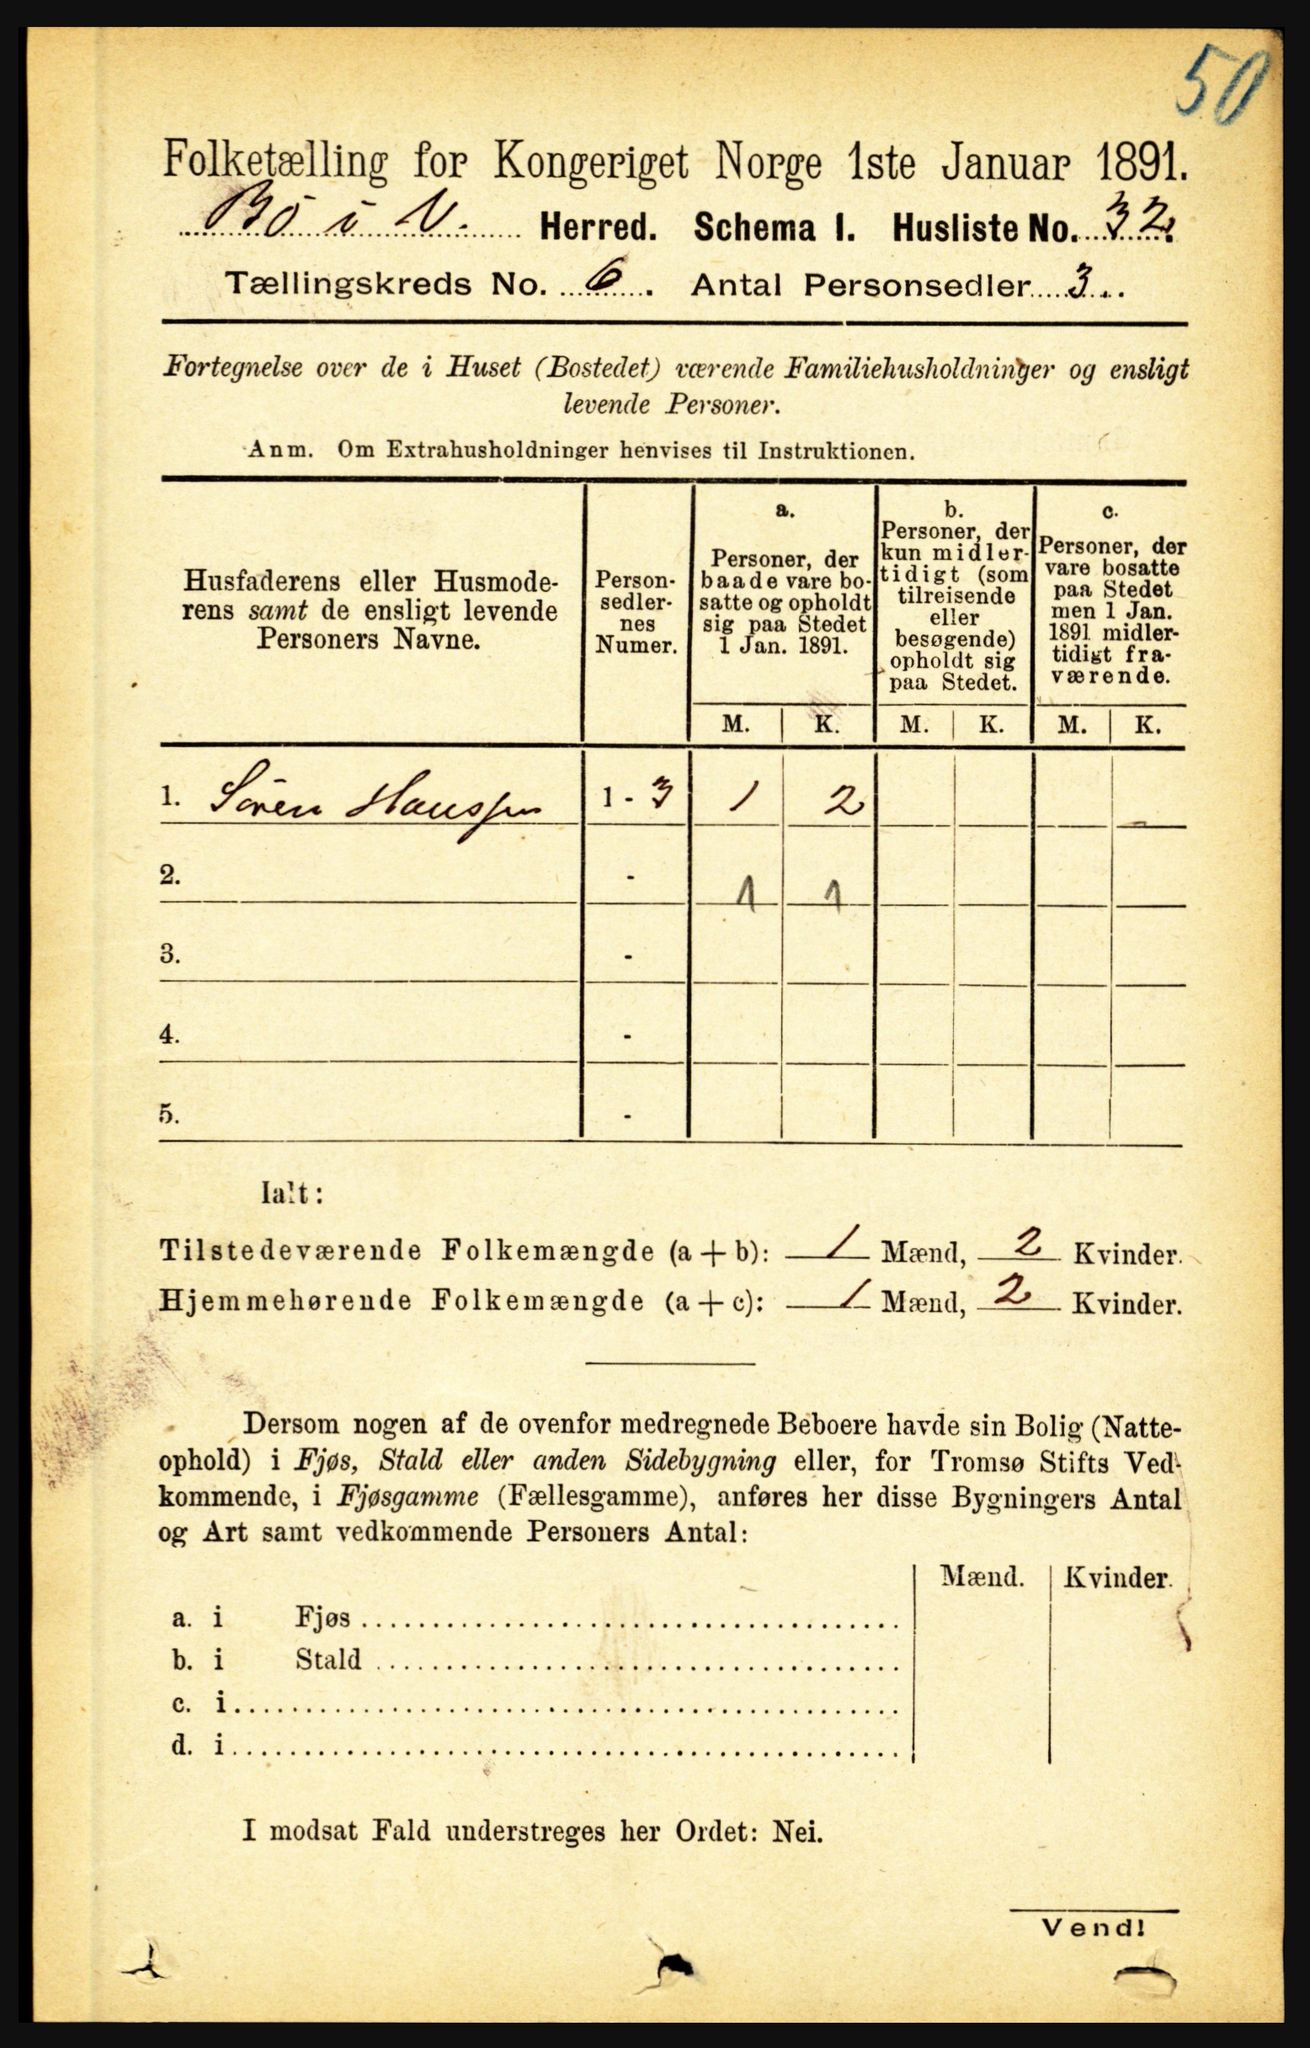 50
Folketælling for Kongeriget Norge 1ste Januar 1891.
Bö i V. Herred. Schema I. Husliste No. 32.
Tællingskreds No. 6. Antal Personsedler 3.
Fortegnelse over de i Huset (Bostedet) værende Familiehusholdninger og ensligt
levende Personer.
Anm. Om Extrahusholdninger henvises til Instruktionen.
Husfaderens eller Husmode-
rens samt de ensligt levende
Personers Navne.
Person-
sedler-
nes
Numer.
a.
Personer, der
baade vare bo-
satte og opholdt
sig paa Stedet
1 Jan. 1891.
b.
Personer, der
kun midler-
tidigt (som
tilreisende
eller
besøgende)
opholdt sig
paa Stedet.
c.
Personer, der
vare bosatte
paa Stedet
men 1 Jan.
1891 midler-
tidigt fra-
værende.
M. K. M. K. M. K.
1. Sören Hanssen 1 - 3 1 2
2. - 1 1
3. -
4. -
5. -
Ialt:
Tilstedeværende Folkemængde (a + b): 1 Mænd, 2 Kvinder.
Hjemmehørende Folkemængde (a + c): 1 Mænd, 2 Kvinder.
Dersom nogen af de ovenfor medregnede Beboere havde sin Bolig (Natte-
ophold) i Fjøs, Stald eller anden Sidebygning eller, for Tromsø Stifts Ved-
kommende, i Fjøsgamme (Fællesgamme), anføres her disse Bygningers Antal
og Art samt vedkommende Personers Antal:
Mænd. Kvinder.
a. i Fjøs
b. i Stald
c. i
d. i
I modsat Fald understreges her Ordet: Nei.
Vend!